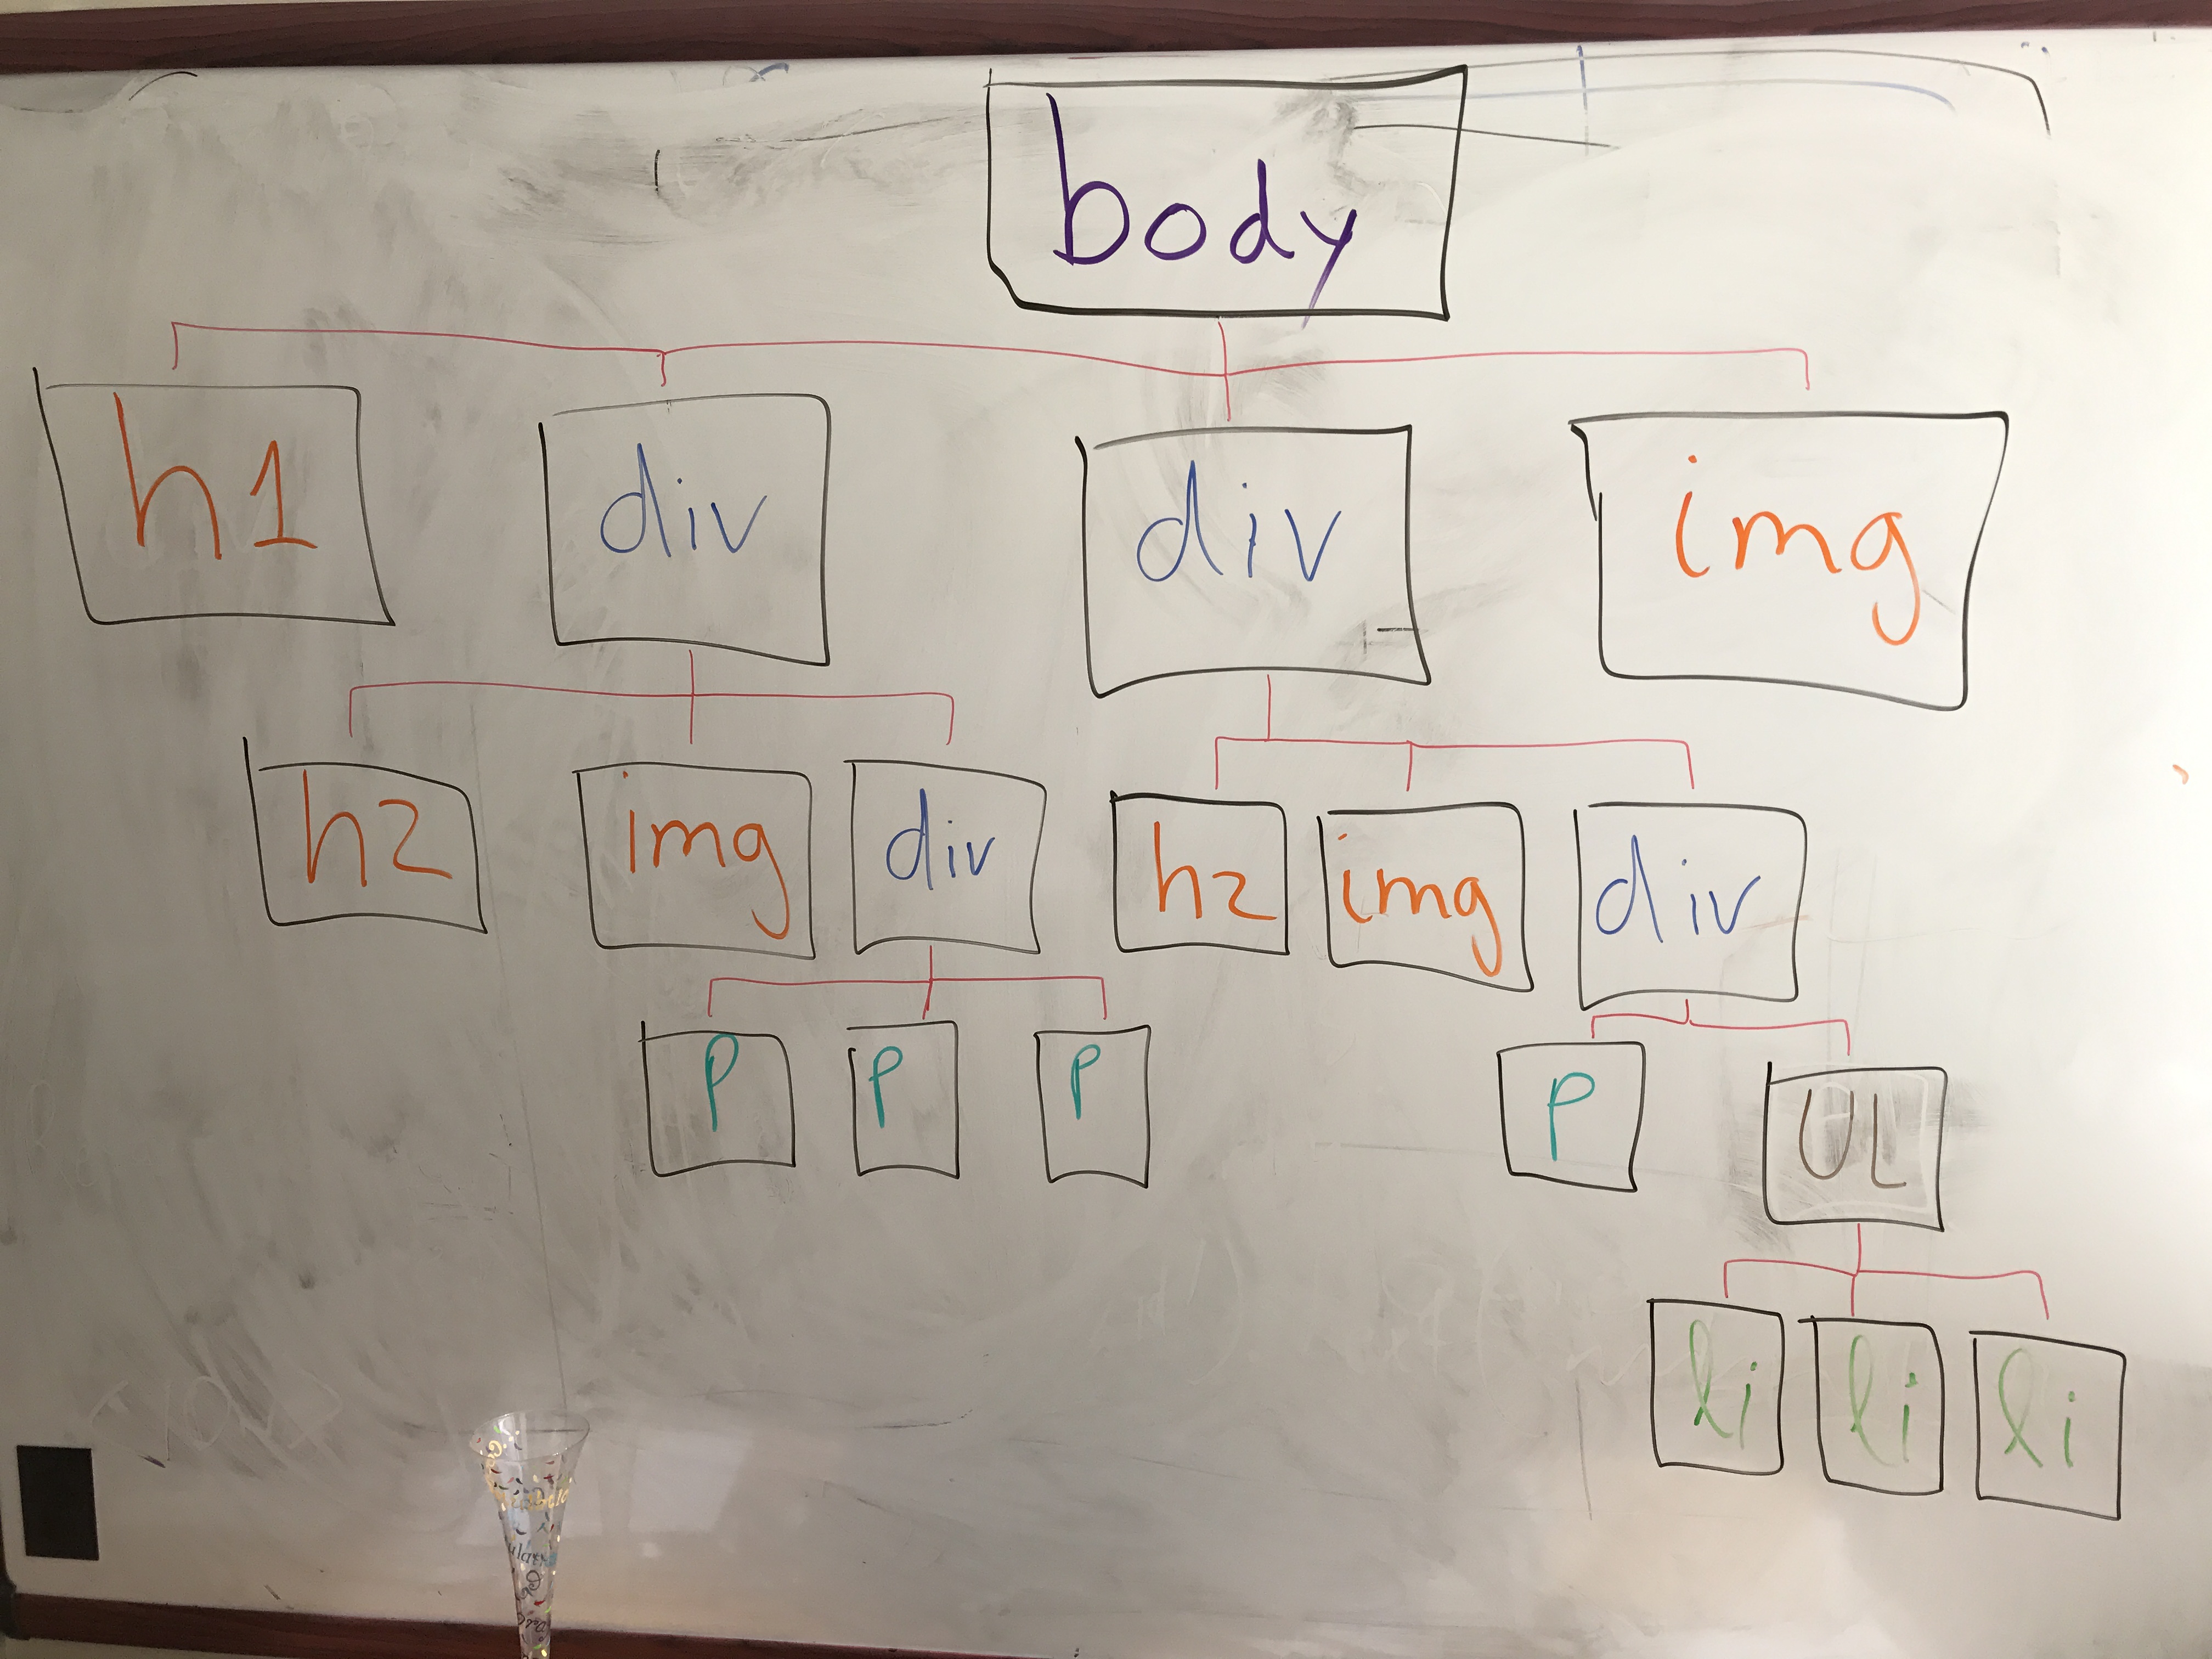 body
h1 div div img
h2 img div h2 img div
P P P P UL
li li li